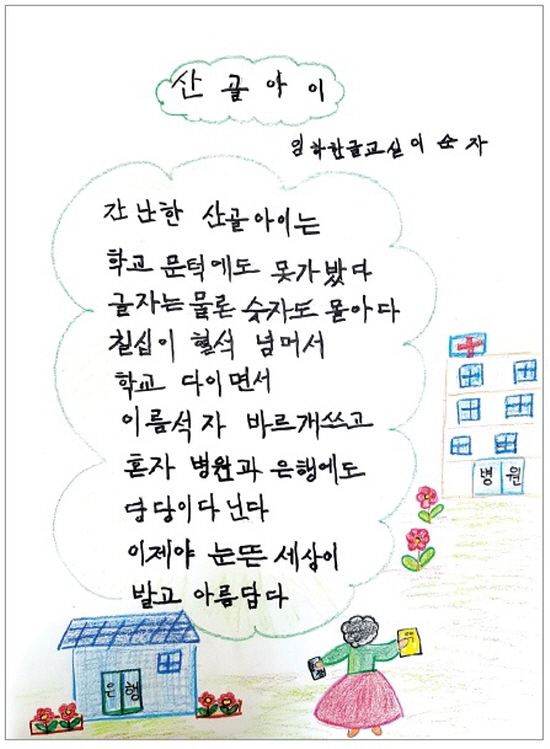 산골아이
임학한글교실 이순자
간난한 산골아이는
학교 문턱에도 못가봤다
글자는물론 숫자도 몰아다
칠십이 훨석 넘머서
학교 다이면서
이름석자 바르개쓰고
혼자 병원과 은행에도
당당이다닌다
이제야 눈뜬세상이
발고 아름답다
병원
은행